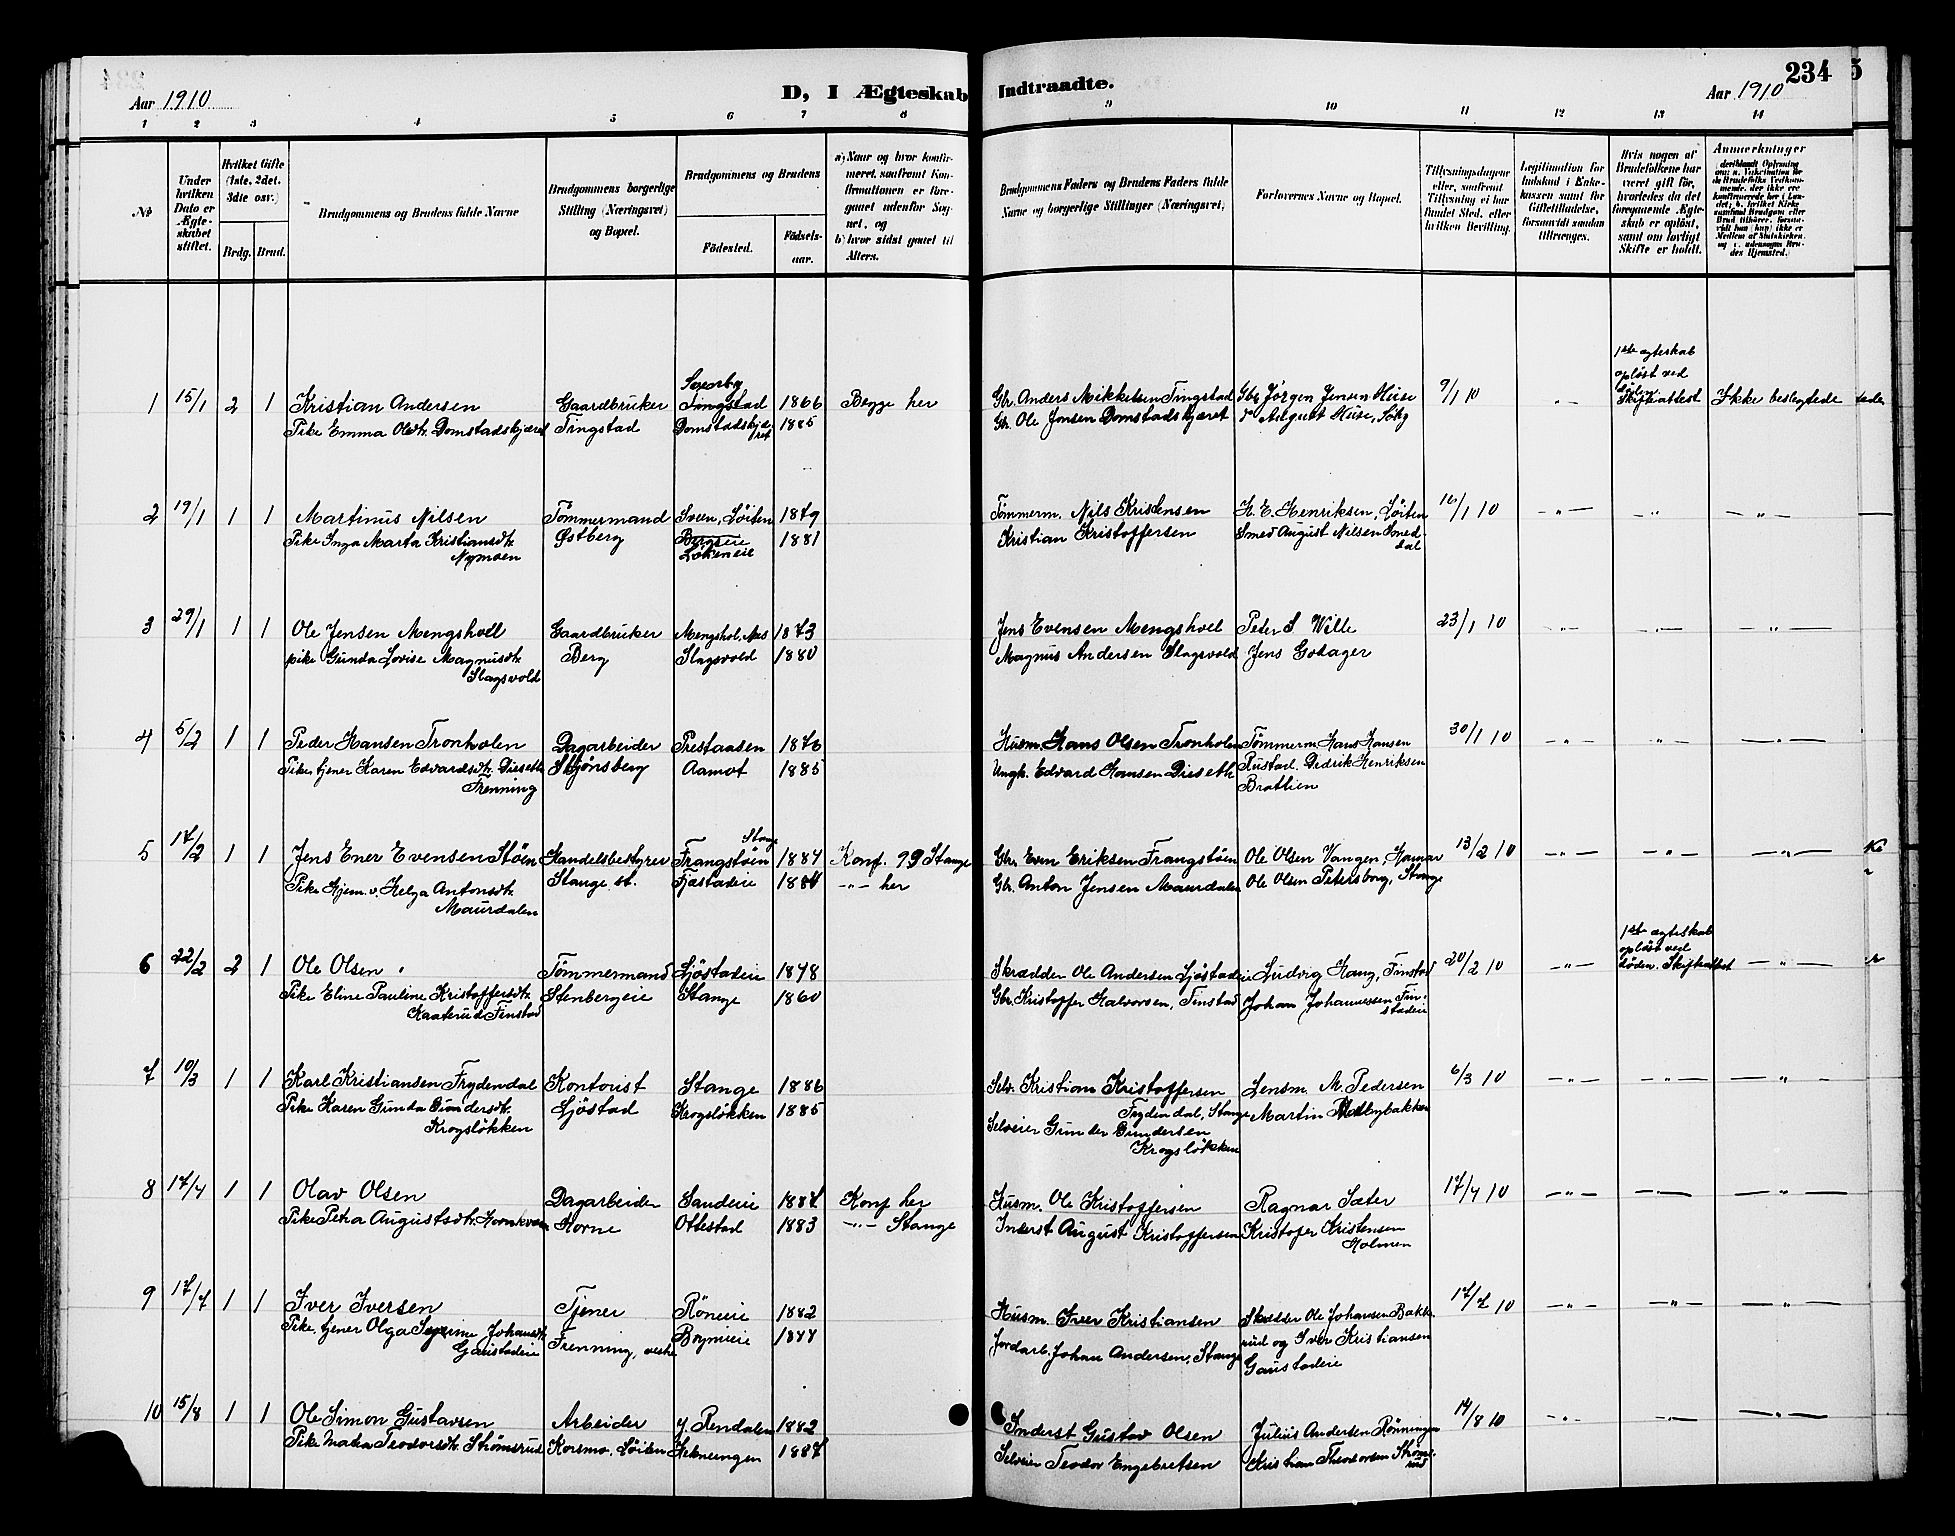 234
Aar 1910
D, I Ægteskab Indtraadte.
Aar 1910
1 2 3 4 5 6 7 8 9 10 11 12 13 14
No
Under hvilken Dato er Ægteskabet stiftet.
Hvilket Gifte (1ste, 2det, 3die osv.)
Brdg. Brud.
Brudgommens og Brudens fulde Navne
Brudgommens borgerlige Stilling (Næringsvei) og Bopæl.
Brudgommens og Brudens
Fødested.
Fødselsaar.
a) Naar og hvor konfirmeret, saafremt Konfirmationen er foregaaet udenfor Sognet, og
b) hvor sidst gaaet til Alters.
Brudgommens Faders og Brudens Faders fulde Navne og borgerlige Stillinger (Næringsvei)
Forlovernes Navne og Bopæl.
Tillysningsdagene eller, saafremt Tillysning ei har fundet Sted, efter hvilken Bevilling.
Legitimation for Indskud i Enkekassen samt for Giftetilladelse, forsaavidt saadan tiltrænges.
Hvis nogen af Brudefolkene har været gift før, hvorledes da det foregaaende Ægteskab er opløst, samt om lovligt Skifte er holdt.
Anmerkninger
1 15/1 2 1 Kristian Andersen Gaardbruker Tingstad 1866 Begge her Gbr. Anders Mikkelsen Tingstad Gbr Jørgen Jensen Huse 9/1 10 -"- 1ste ægteskab opløst ved Skifteattest Ikke beslegtede
Pike Emma Olsdtr. Domstadskjæret Tingstad Domstadskjæret 1885 Gbr. Ole Jensen Domstadskjæret August Huse,
2 19/1 1 1 Martinus Nilsen Tømmermand Sveen, Løiten 1879 Tømmerm. Nils Kristensen K. E. Henriksen, Løiten 16/1 10 -"- -"- -"-
Pike Inga Marta Kristiansdtr. Østberg 1881 Kristian Kristoffersen Smed August Nilsen Smeddal
Nymoen Løkeneie
3 29/1 1 1 Ole Jensen Mengshoel Gaardbruker Mengshol, Nes 1873 Jens Evensen Mengshoel Peter S. Wille 23/1 10 -"- -"- -"-
pike Gunda Lovise Magnusdtr. Berg Slagsvold 1880 Magnus Andersen Slagsvold Jens Gotager
Slagsvold
4 5/2 1 1 Peder Hansen Tronholen Dagarbeider Prestaasen 1876 Husm. Hans Olsen Tronholen Tømmerm Hans Hansen 30/1 10 -"- -"- -"-
Pike tjener Karen Edvardsdtr. Dieseth Skjønsberg Aamot 1885 Ungk. Edvard Hansen Dieseth Rustad. Didrik Henriksen
Frenning Brattlien
5 17/2 1 1 Jens Ener Evensen Støen Handelsbestyrer Frangstøen Stange 1884 Konf. 99 Stange Gbr. Even Eriksen Frangstøen Ole Olsen Vangen, Hamar 13/2 10 -"- -"- -"-
Pike Hjem. v. Helga Antonsdtr. Stange st. Fjæstadeie 1884 -"- her Gbr. Anton Jensen Maurdalen Ole Olsen Petersborg, Stange
Maurdalen
6 22/2 2 1 Ole Olsen Tømmermand Ljøstadeie 1848 Skrædder Ole Andersen Ljøstadeie Ludvig Haug, Finstad 20/2 10 -"- 1ste ægteskab opløst ved døden. Skifteattest -"-
Pike Eline Pauline Kristoffersdtr. Stenbergeie Stange 1860 Gbr. Kristoffer Halvorsen, Finstad Johan Johannessen Finstadeie
Kaaterud Finstad
7 10/3 1 1 Karl Kristiansen Frydendal Kontorist Stange 1886 Selv. Kristian Kristoffersen Lensm. M. Pedersen 6/3 10 -"- -"- -"-
Frydendal, Stange
Pike Karen Gunda Gundersdtr. Ljøstad Krogsløkken 1885 Selveier Gunder Gundersen Martin
Krogsløkken Krogsløkken
8 17/4 1 1 Olav Olsen Dagarbeider Sandeie 1884 Konf her Husm. Ole Kristoffersen Ragnar Sæter 17/4 10 -"- -"- -"-
Pike Petra Augustsdtr. Hornkvern Horne Ottestad 1883 -"- Stange Inderst August Kristoffersen Kristofer Kristensen
Holmen
9 17/7 1 1 Iver Iversen Tjener Røneie 1882 Husm. Iver Kristiansen Skrædder Ole Johansen Bakkerud og Iver Kristiansen 17/7 10 -"- -"- -"-
Pike, tjener Olga Johansdtr. Frenning, vestre 1877 Jordarb. Johan Andersen, Stange Gaustadeie
Gaustadeie
10 15/8 1 1 Ole Simon Gustavsen Arbeider y. Rendalen 1882 Inderst Gustav Olsen Julius Andersen Rønningen 14/8 10 -"- -"- -"-
Pike Teodorsdtr. Strømsrud Korsmo, Løiten 1887 Selveier Teodor Engebretsen Kristian Theodorsen Strømsrud